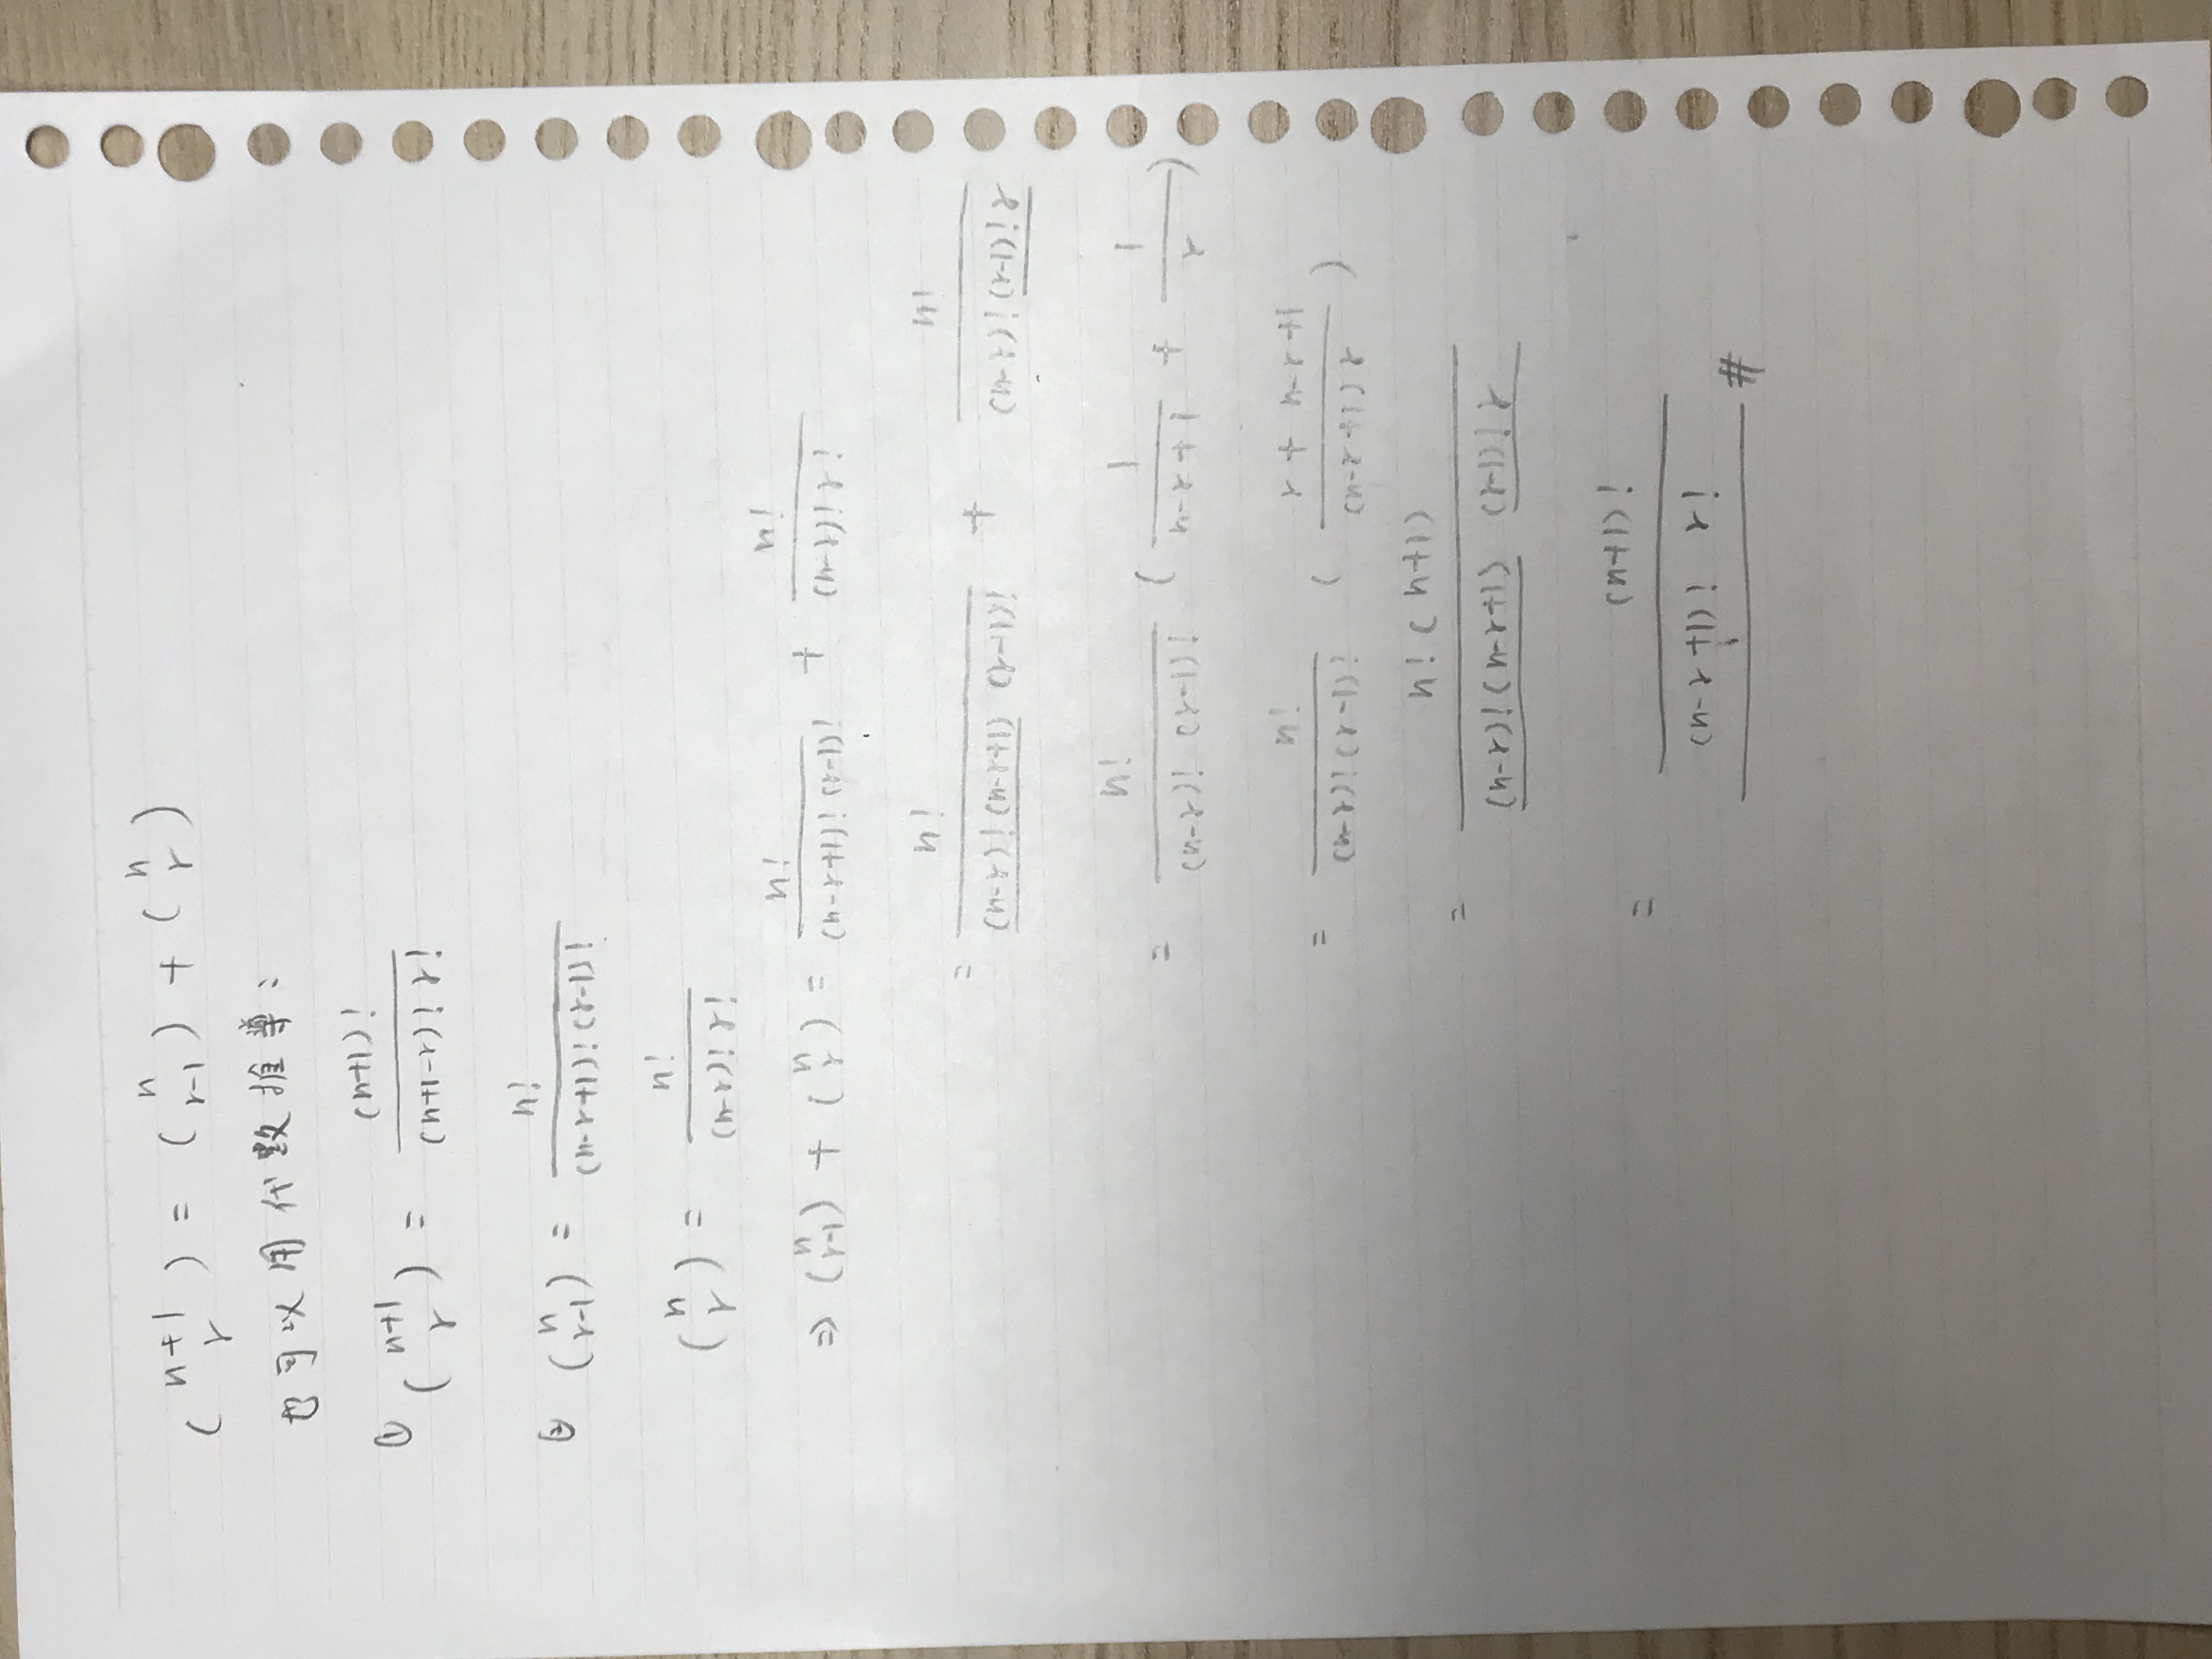 (n+1 r) = (n r-1) + (n r)
也可以用代數推導：
① (n+1 r) = (n+1)! / (n+1-r)! r!
② (n r-1) = n! / (n-r+1)! (r-1)!
(n r) = n! / (n-r)! r!
⇒ (n r-1) + (n r) = n! / (n-r+1)! (r-1)! + n! / (n-r)! r!
= n! / (n-r)! (n-r+1) (r-1)! + n! / (n-r)! (r-1)! r
= n! / (n-r)! (r-1)! ( 1 / n-r+1 + 1 / r )
= n! / (n-r)! (r-1)! ( r + n-r+1 / (n-r+1) r )
= n! (n+1) / (n-r)! (n-r+1) (r-1)! r
= (n+1)! / (n-r+1)! r! #